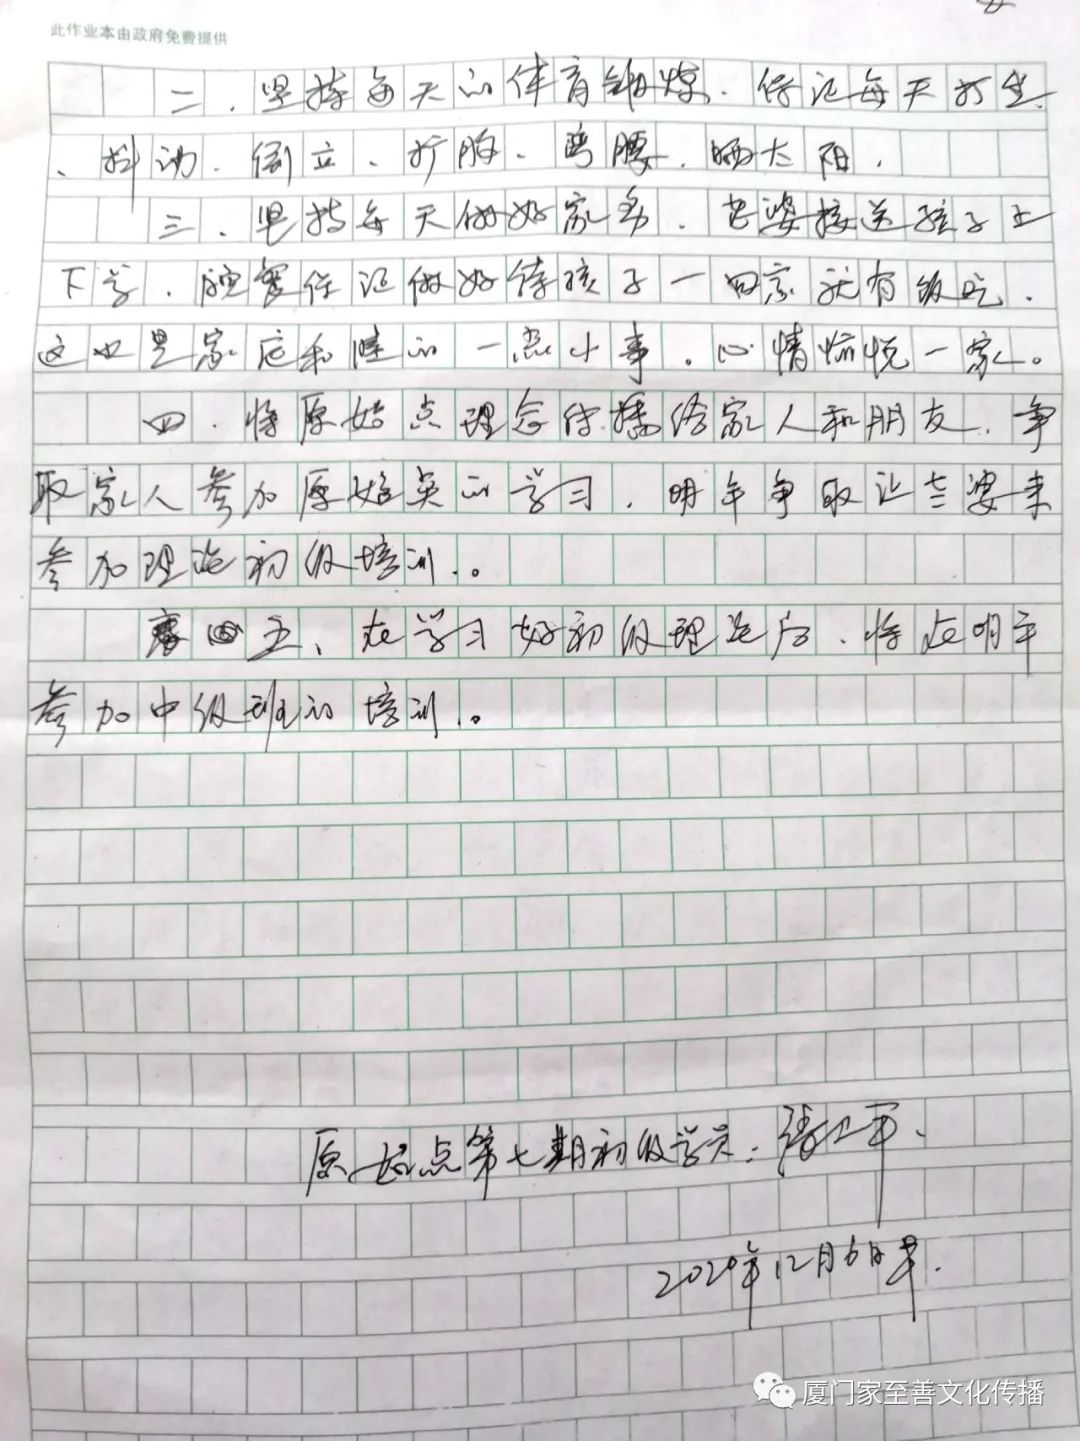 此作业本由政府免费提供
二、坚持每天的体育锻炼、保证每天打坐
、抖动、倒立、扩胸、弯腰、晒太阳、
三、坚持每天做好家务、老婆接送孩子上
下学、保证做好待孩子一回家就有饭吃、
这也是家庭和睦的一点小事。心情愉悦一家人。
四、将原始点理念传播给家人和朋友、争
取家人参加原始点的学习、明年争取让老婆来
参加理论初级培训。
五、在学习好初级理论后、将在明年
参加中级班的培训。
原始点第七期初级学员：张卫军、
2020年12月6日早.
厦门家至善文化传播